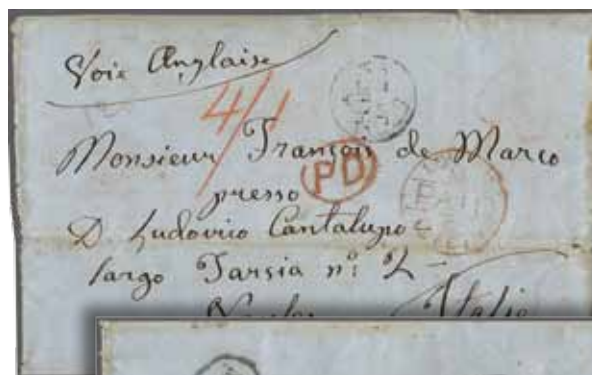 Voie Anglaise
4/1
Monsieur François de Marco
PD
presso
PAID
D. Ludovico Cantalupo
largo Tarsia nº: 2
Naples Italie